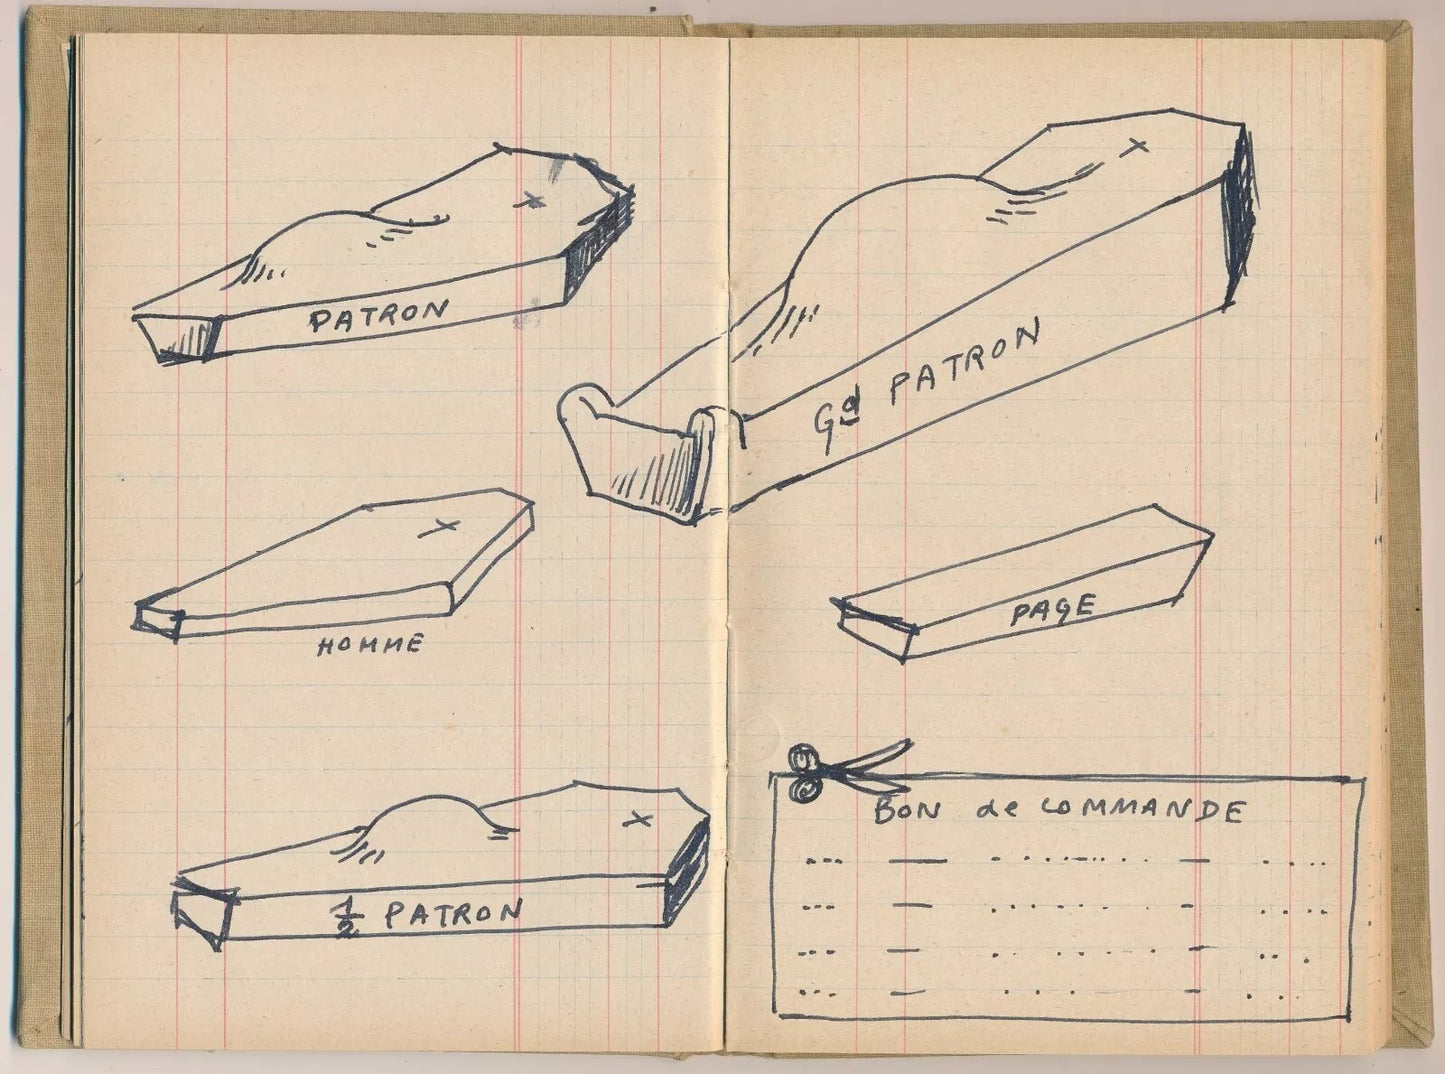 PATRON
HOMME
1/2 PATRON
Gd PATRON
PAGE
BON de COMMANDE